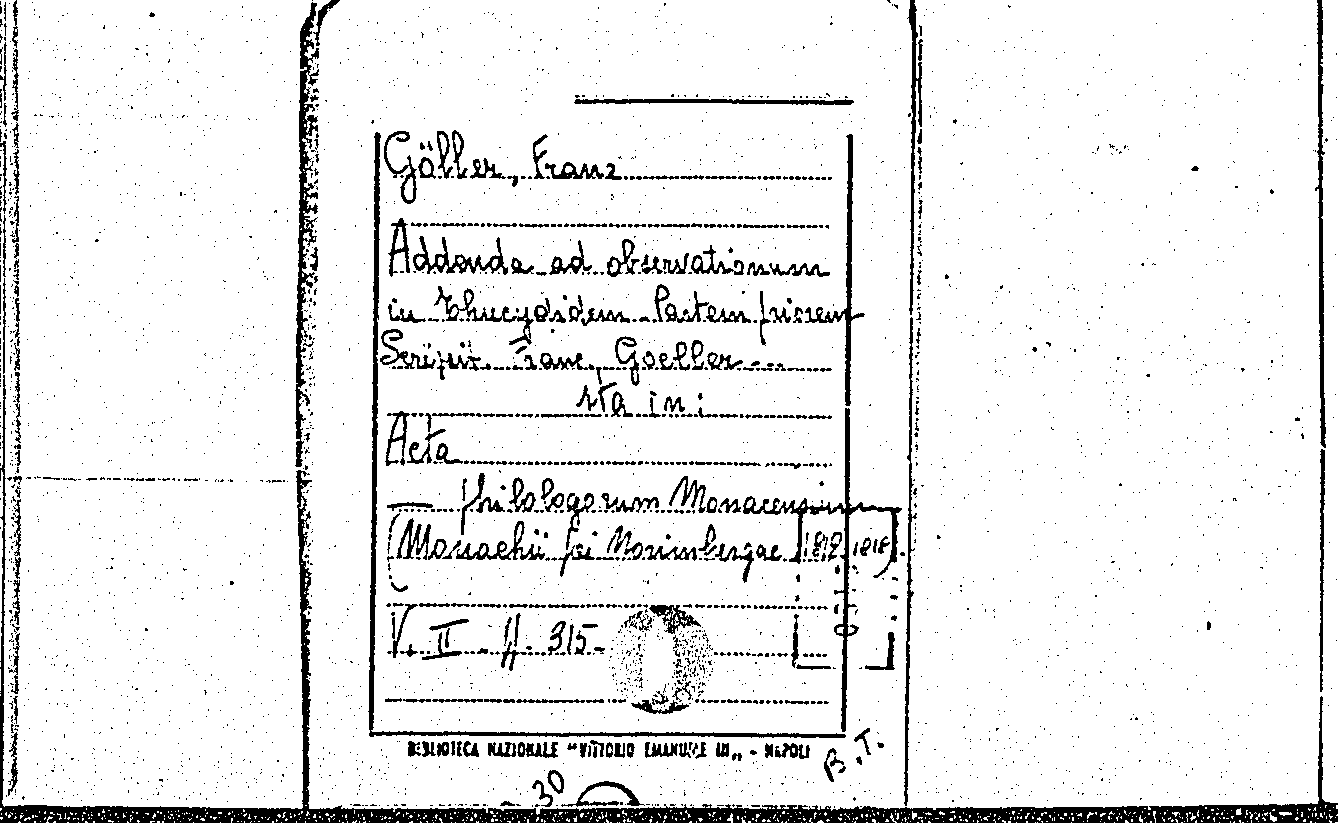 Göller, Franz
Addenda ad observationum
in Thucydidem Partem priorem
Scripsit Franc. Goeller...
sta in:
Acta
— philologorum Monacensium
(Monachii poi Norimbergae 1812 1818).
V. II. p. 315-
BIBLIOTECA NAZIONALE "VITTORIO EMANUELE III" - NAPOLI
B.T.
30